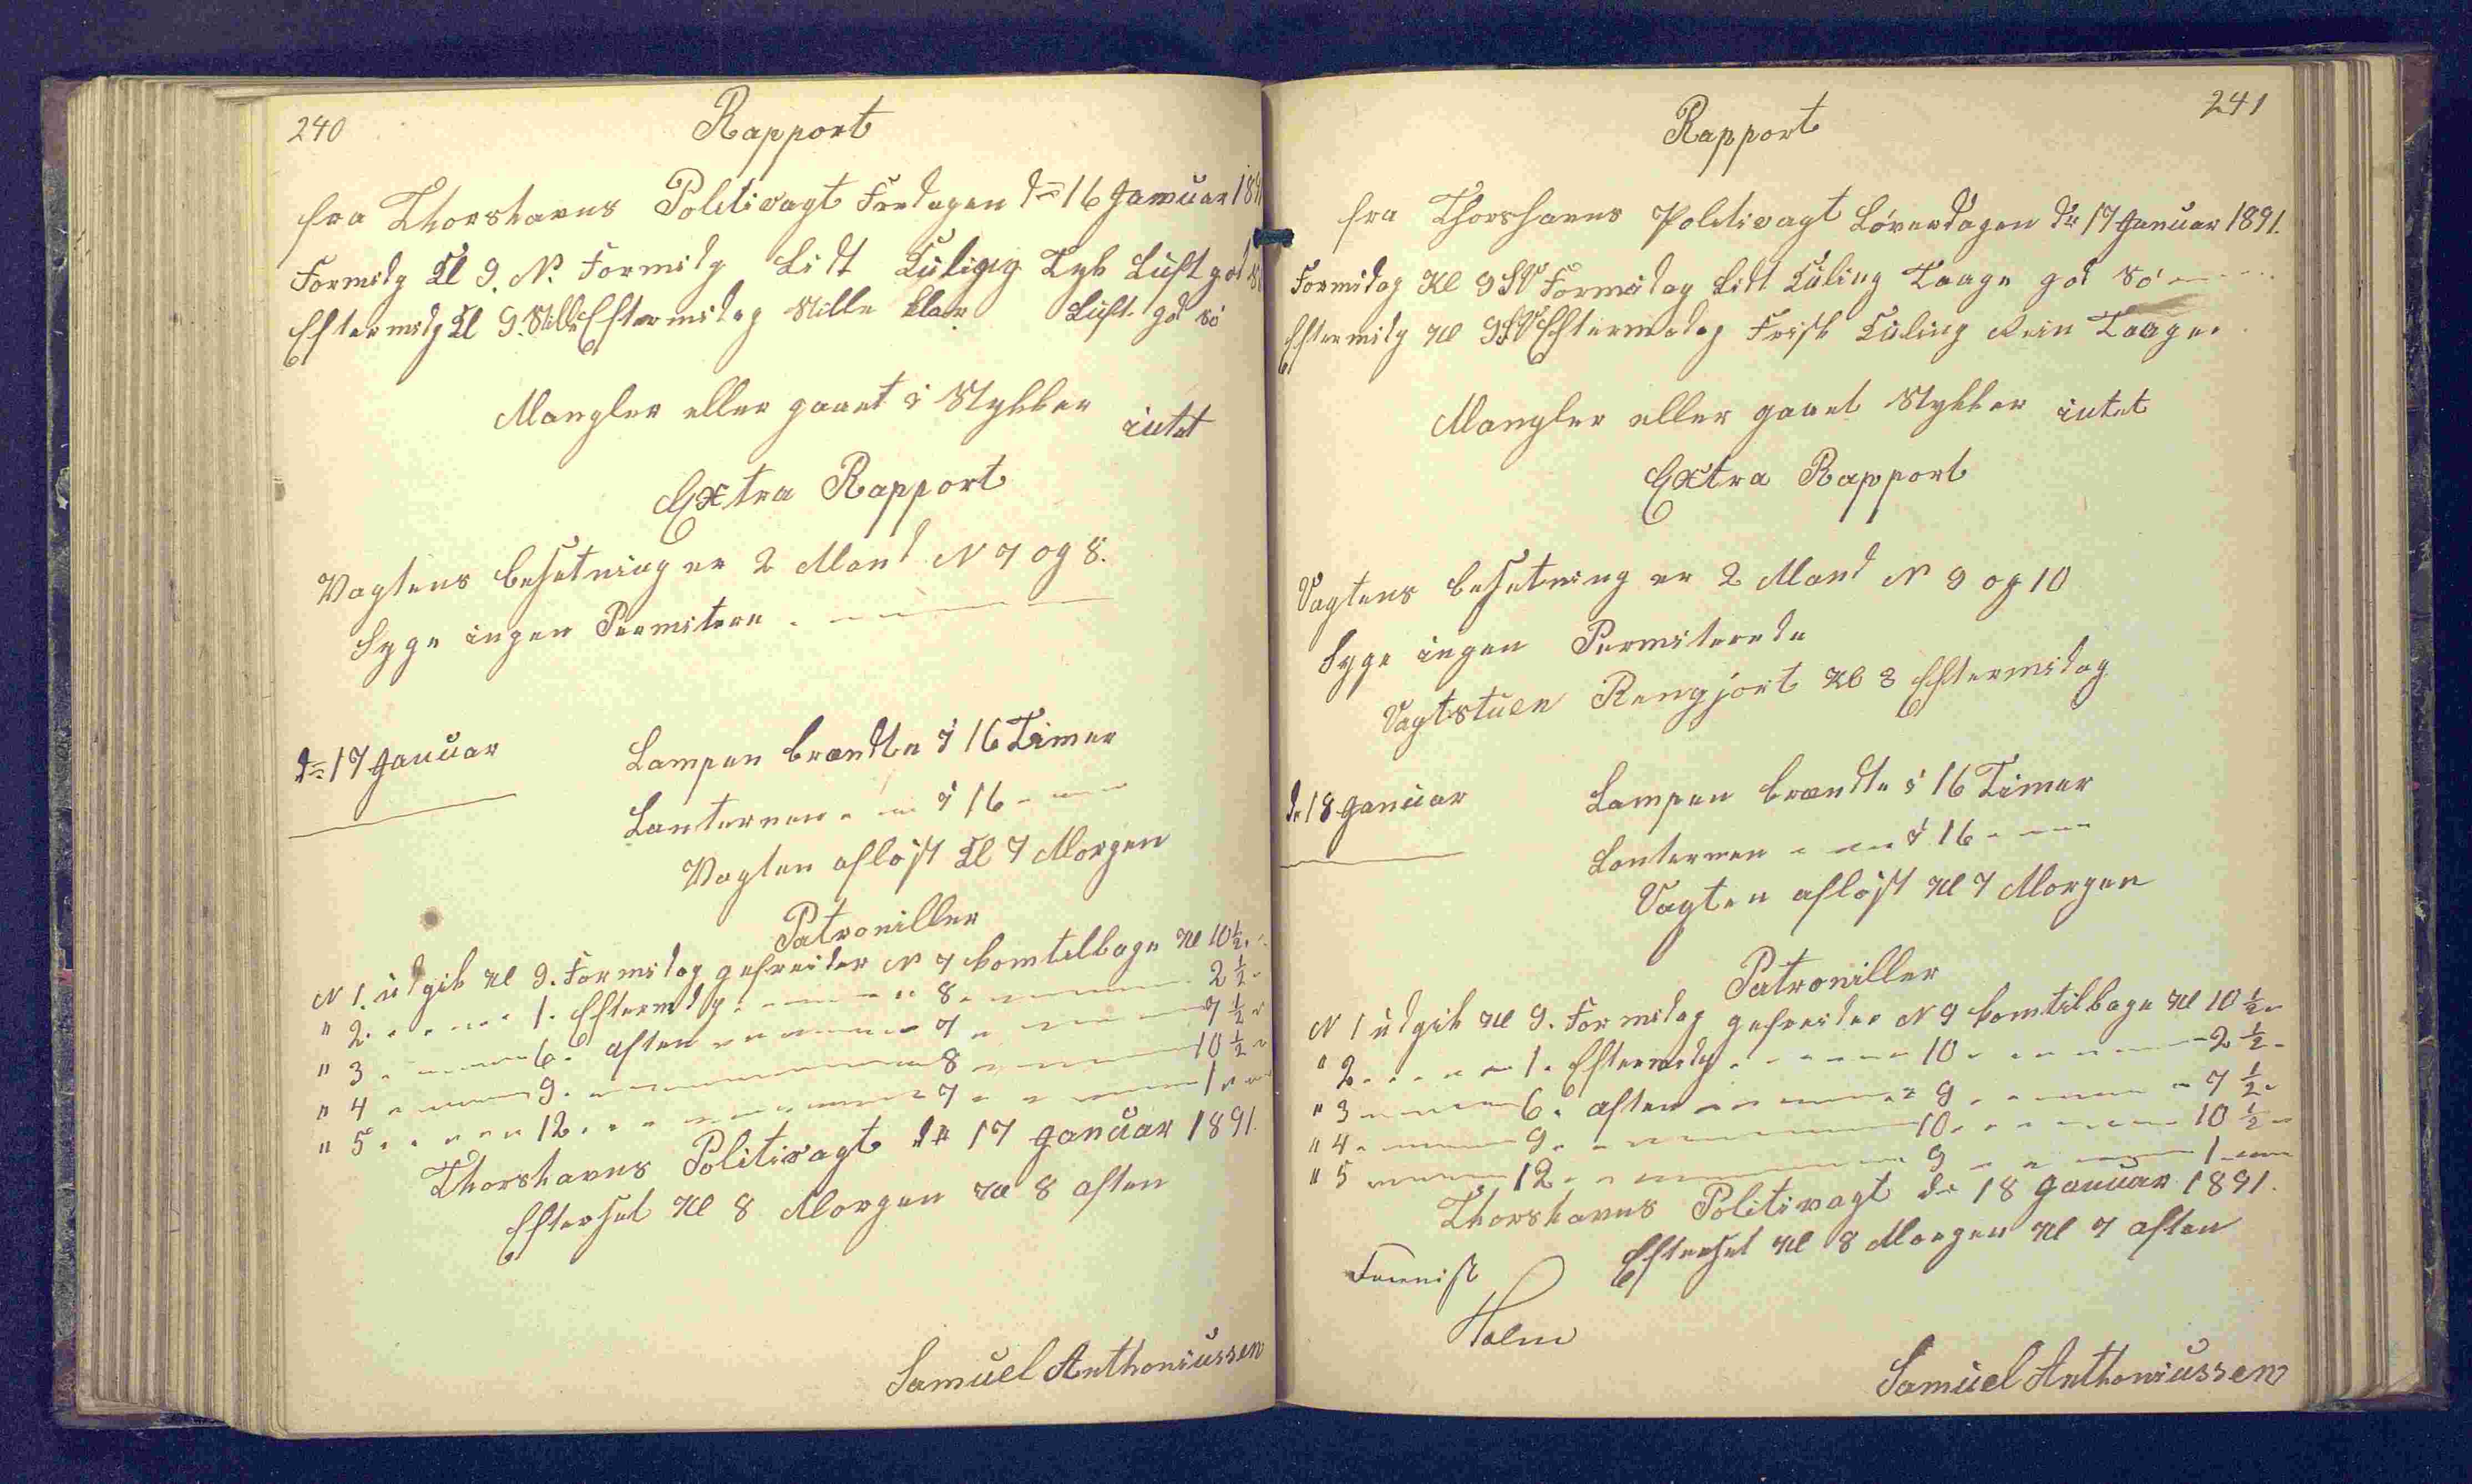 240
Rapport
fra Thorshavns Politivagt Fredagen d= 16 Januar 189
Formidg Kl 9. N. Formidg Lidt Kuling Tyk Luft god
Eftermidg Kl 9. Stille Eftermidag Stille klar Luft god Sö
Mangler eller gaaet i Stykker intet
Extra Rapport
Vagtens besetning er 2 Mand N 7 og 8.
Syge ingen Permitere
d= 17 Januar
Lampen brændte i 16 Timer
Lanternen " " i 16 " "
Vagten aflöst Kl 7 Morgen
Patroniller
N 1. udgik Kl 9. Formidag gefreider N 7 kom tilbage Kl 10 ½ "
" 2. " " " 1. Eftermidg. " " " 8 " " " 2 ½ "
" 3 " " " 6. Aften " " " 7 " " " 7 ½ "
" 4 " " " 9. " " " 8 " " " 10 ½ "
" 5 " " " 12. " " " 7 " " " 1 " "
Thorshavns Politivagt d= 17 Januar 1891.
Efterset Kl 8 Morgen Kl 8 Aften
Samuel Anthoniussen
241
Rapport
fra Thorshavns Politivagt Löverdagen dn 17 Januar 1891.
Formidag Kl 9 SV Formidag Lidt Kuling Taage god Sö
Eftermidg Kl 9 SV Eftermidag Frisk Kuling Rein Taage.
Mangler eller gaaet Stykker intet
Extra Rapport
Vagtens besetning er 2 Mand N 9 og 10
Syge ingen Permiterede
Vagtstuen Rengjort Kl 3 Eftermidag
dn 18 Januar
Lampen brændte i 16 Timer
Lanternen " " i 16 " "
Vagten aflöst Kl 7 Morgen
Patroniller
N 1 udgik Kl 9. Formidag gefreider N 9 kom tilbage Kl 10 ½ "
" 2. " " " 1. Eftermidg. " " " 10 " " " 2 ½ "
" 3 " " " 6. Aften " " " 9 " " " 7 ½ "
" 4. " " " 9. " " " 10. " " " 10 ½ "
" 5 " " " 12. " " " 9 " " " 1 " "
Thorshavns Politivagt dn 18 Januar 1891.
Efterset Kl 8 Morgen Kl 7 Aften
Holm
Samuel Anthoniussen